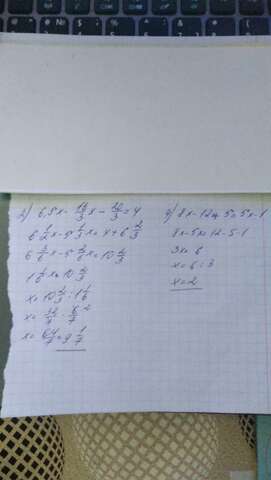 2) 6,5x - 16/3 x - 20/3 = 4
6 1/2 x - 5 1/3 x = 4 + 6 2/3
6 3/6 x - 5 2/6 x = 10 2/3
1 1/6 x = 10 2/3
x = 10 2/3 : 1 1/6
x = 32/3 · 6/7
x = 64/7 = 9 1/7
3) 8x - 12 + 5 = 5x - 1
8x - 5x = 12 - 5 - 1
3x = 6
x = 6 : 3
x = 2